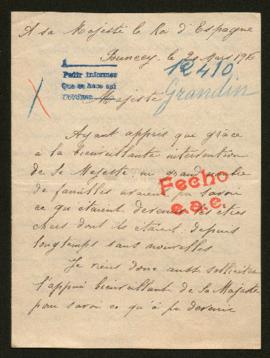 A sa Majesté le Roi d'Espagne
le 2 Mars 191
12410
Pedir informes
Que se hace así
Majesté
Grandin
Ayant appris que grâce
a la bienveillante intervention
de Sa Majesté un grand nombre
de familles avaient pu savoir
ce qu'étaient devenus des êtres
chers dont ils étaient depuis
longtemps sans nouvelles
Fecho
e.s.c.
Je viens donc aussi solliciter
l'appui bienveillant de Sa Majesté
pour savoir ce qu'a pu devenir